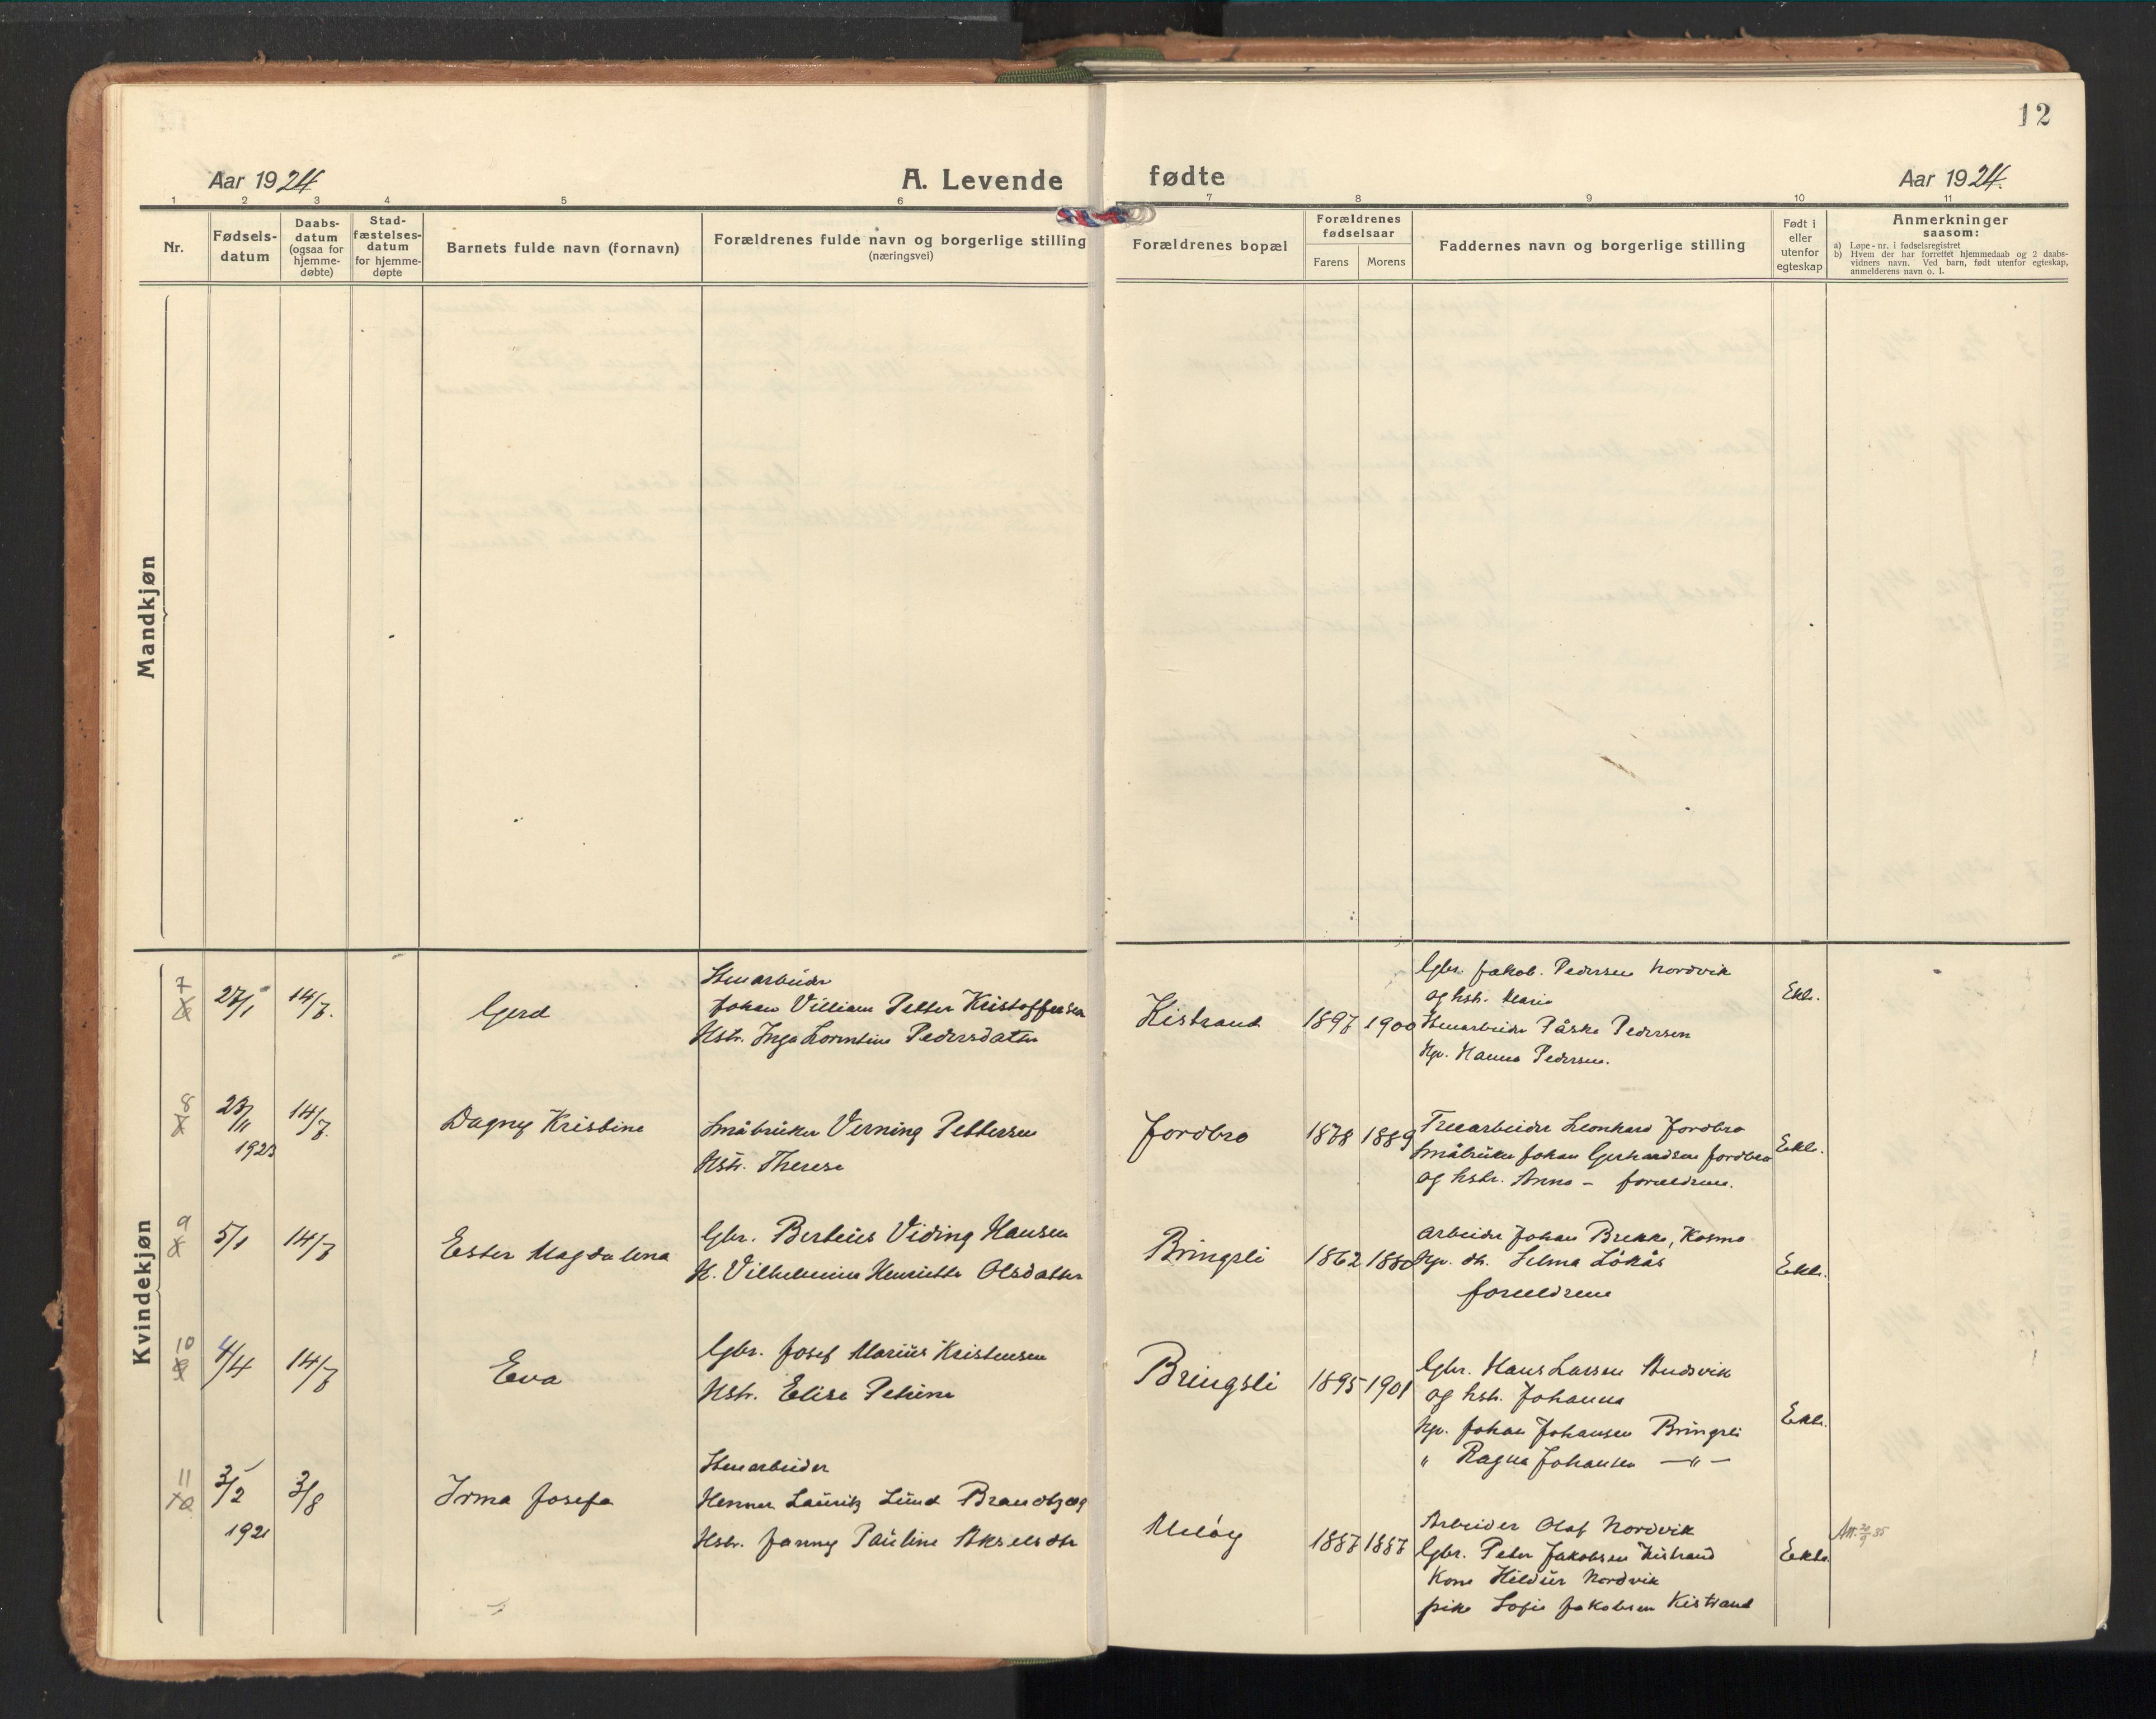 12
Aar 1924
A. Levende
fødte
Aar 1924.
1 2 3 4 5 6 7 8 9 10 11
Nr.
Fødsels-
datum
Daabs-
datum
(ogsaa for
hjemme-
døbte)
Stad-
fæstelses-
datum
for hjemme-
døpte
Barnets fulde navn (fornavn)
Forældrenes fulde navn og borgerlige stilling
(næringsvei)
Forældrenes bopæl
Forældrenes
fødselsaar
Farens Morens
Faddernes navn og borgerlige stilling
Født i
eller
utenfor
egteskap
Anmerkninger
saasom:
a) Løpe-nr. i fødselsregistret
b) Hvem der har forrettet hjemmedaab og 2 daabs-
vidners navn. Ved barn, født utenfor egteskap,
anmelderens navn o. l.
Mandkjøn
Kvindekjøn
7
27/1 14/7.
Gerd
Stenarbeider
Johan Villiam Petter Kristoffersen
Hstr. Inga Lorentine Pedersdatter
Kistrand 1897 1900
Gbr. Jakob. Pedersen Nordvik
og hstr. Marie
Stenarbeider Påske Pedersen
Up. Hanna Pedersen.
Ekte.
8
14/7.
1923
Dagny Kristine
Småbruker Verning Pettersen
Hstr. Therese
Fordbro 1878 1889
Treearbeider Leonhard Fordbro
Småbruker Johan Gerhardsen Fordbro
og hstr. Anna - foreldrene.
Ekte.
9
5/1 14/7
Ester Magdalena
Gbr. Berteus Viding Hansen
H. Vilhelmine Henriette Olsdatter
Bringsli 1862 1880
Arbeider Johan Brekke, Kosmo
Up. Selma Løkås
foreldrene
Ekte.
10
4/4 14/7
Eva
Gbr. Josef Marius Kristensen
Hstr. Elise Petrine
Bringsli 1895 1901
Gbr. Hans Larsen
og hstr. Johanna
Up. Johan Johansen Bringsli
" Ragna Johansen —"—
Ekte.
11
3/2 3/8
1921
Irma Josefa
Stenarbeider
Henner Lauritz Lund Brandtzæg
Hstr. Fanny Pauline Akselsdtr
Meløy 1887 1887
Arbeider Olaf Nordvik
Gbr. Peter Jakobsen Kistrand
Kone Hildur Nordvik
pike Sofie Jakobsen Kistrand
Ekte.
Att.